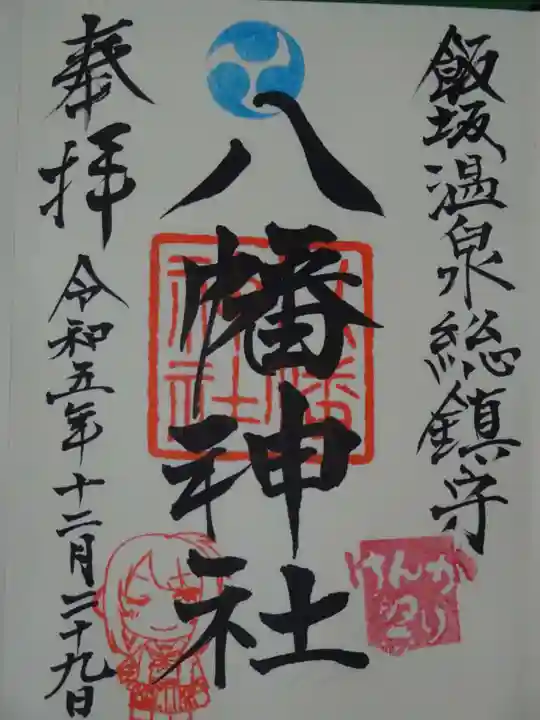 飯坂温泉総鎮守
八幡神社
奉拝
令和五年十二月二十九日
八幡神社
けんか